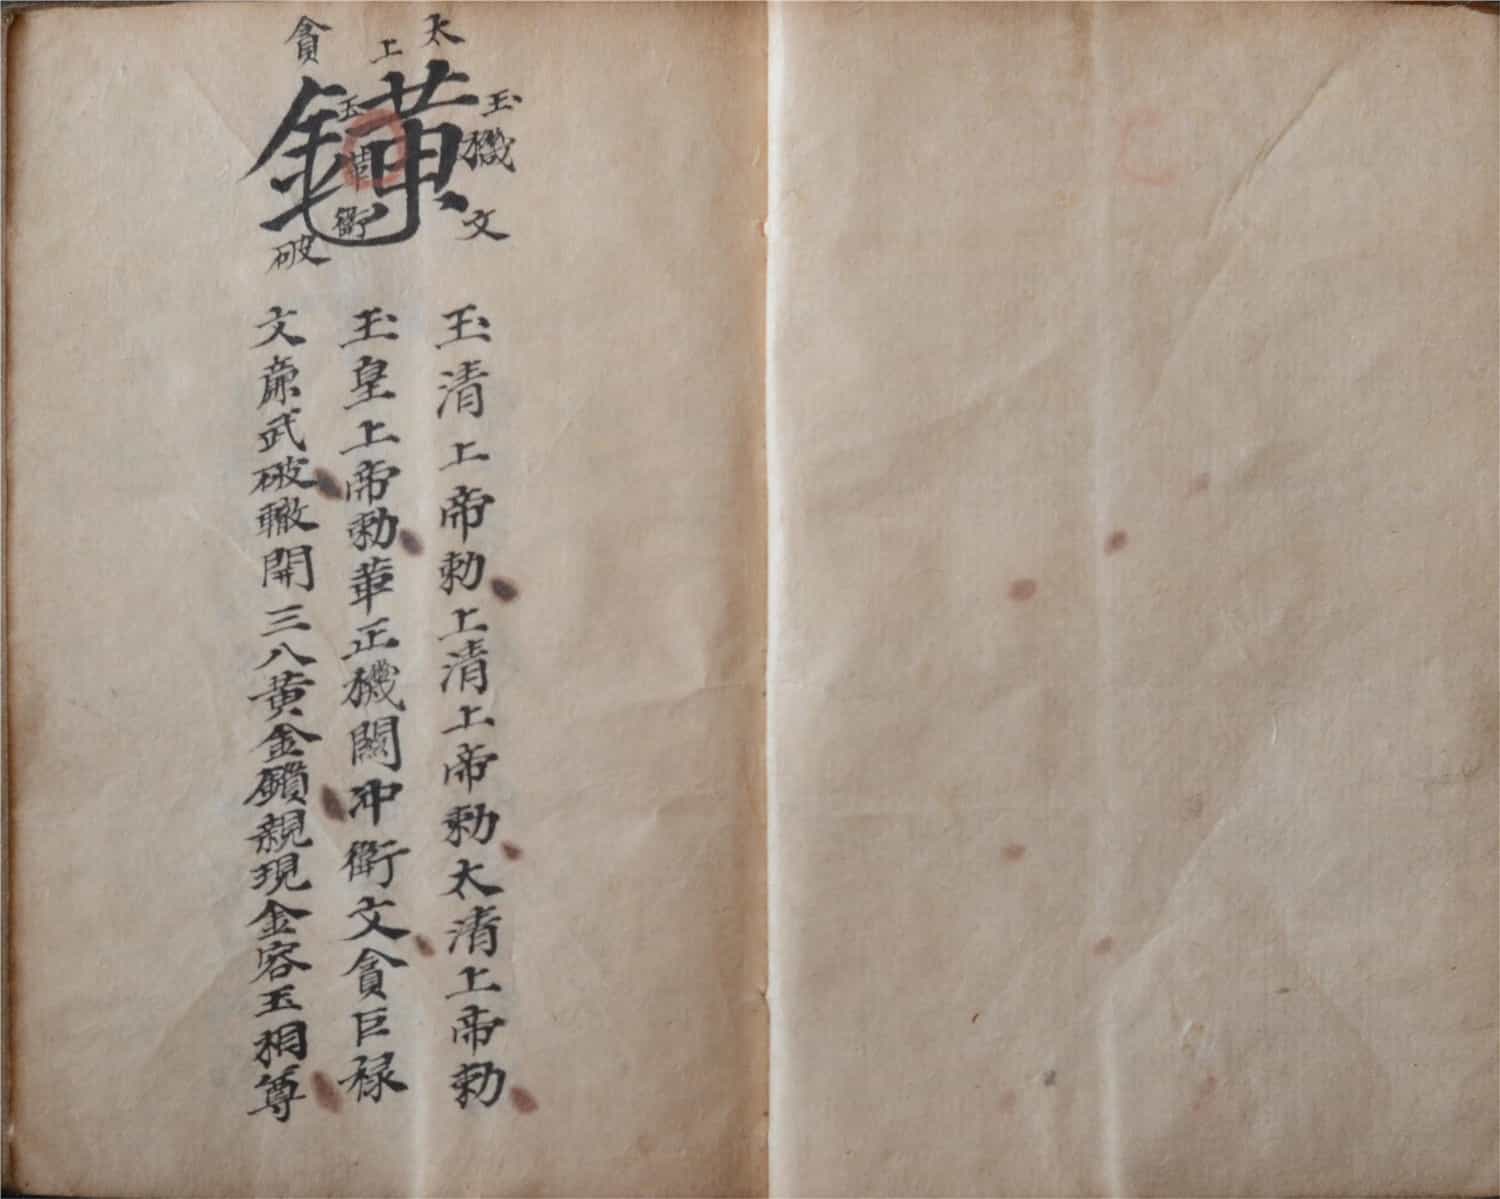 太上
玉機文
鐄
玉華衝
貪
破
玉清上帝勅上清上帝勅太清上帝勅
玉皇上帝勅華正機關冲衝文貪巨祿
文亷武破轍開三八黄金鎖親現金容玉相尊